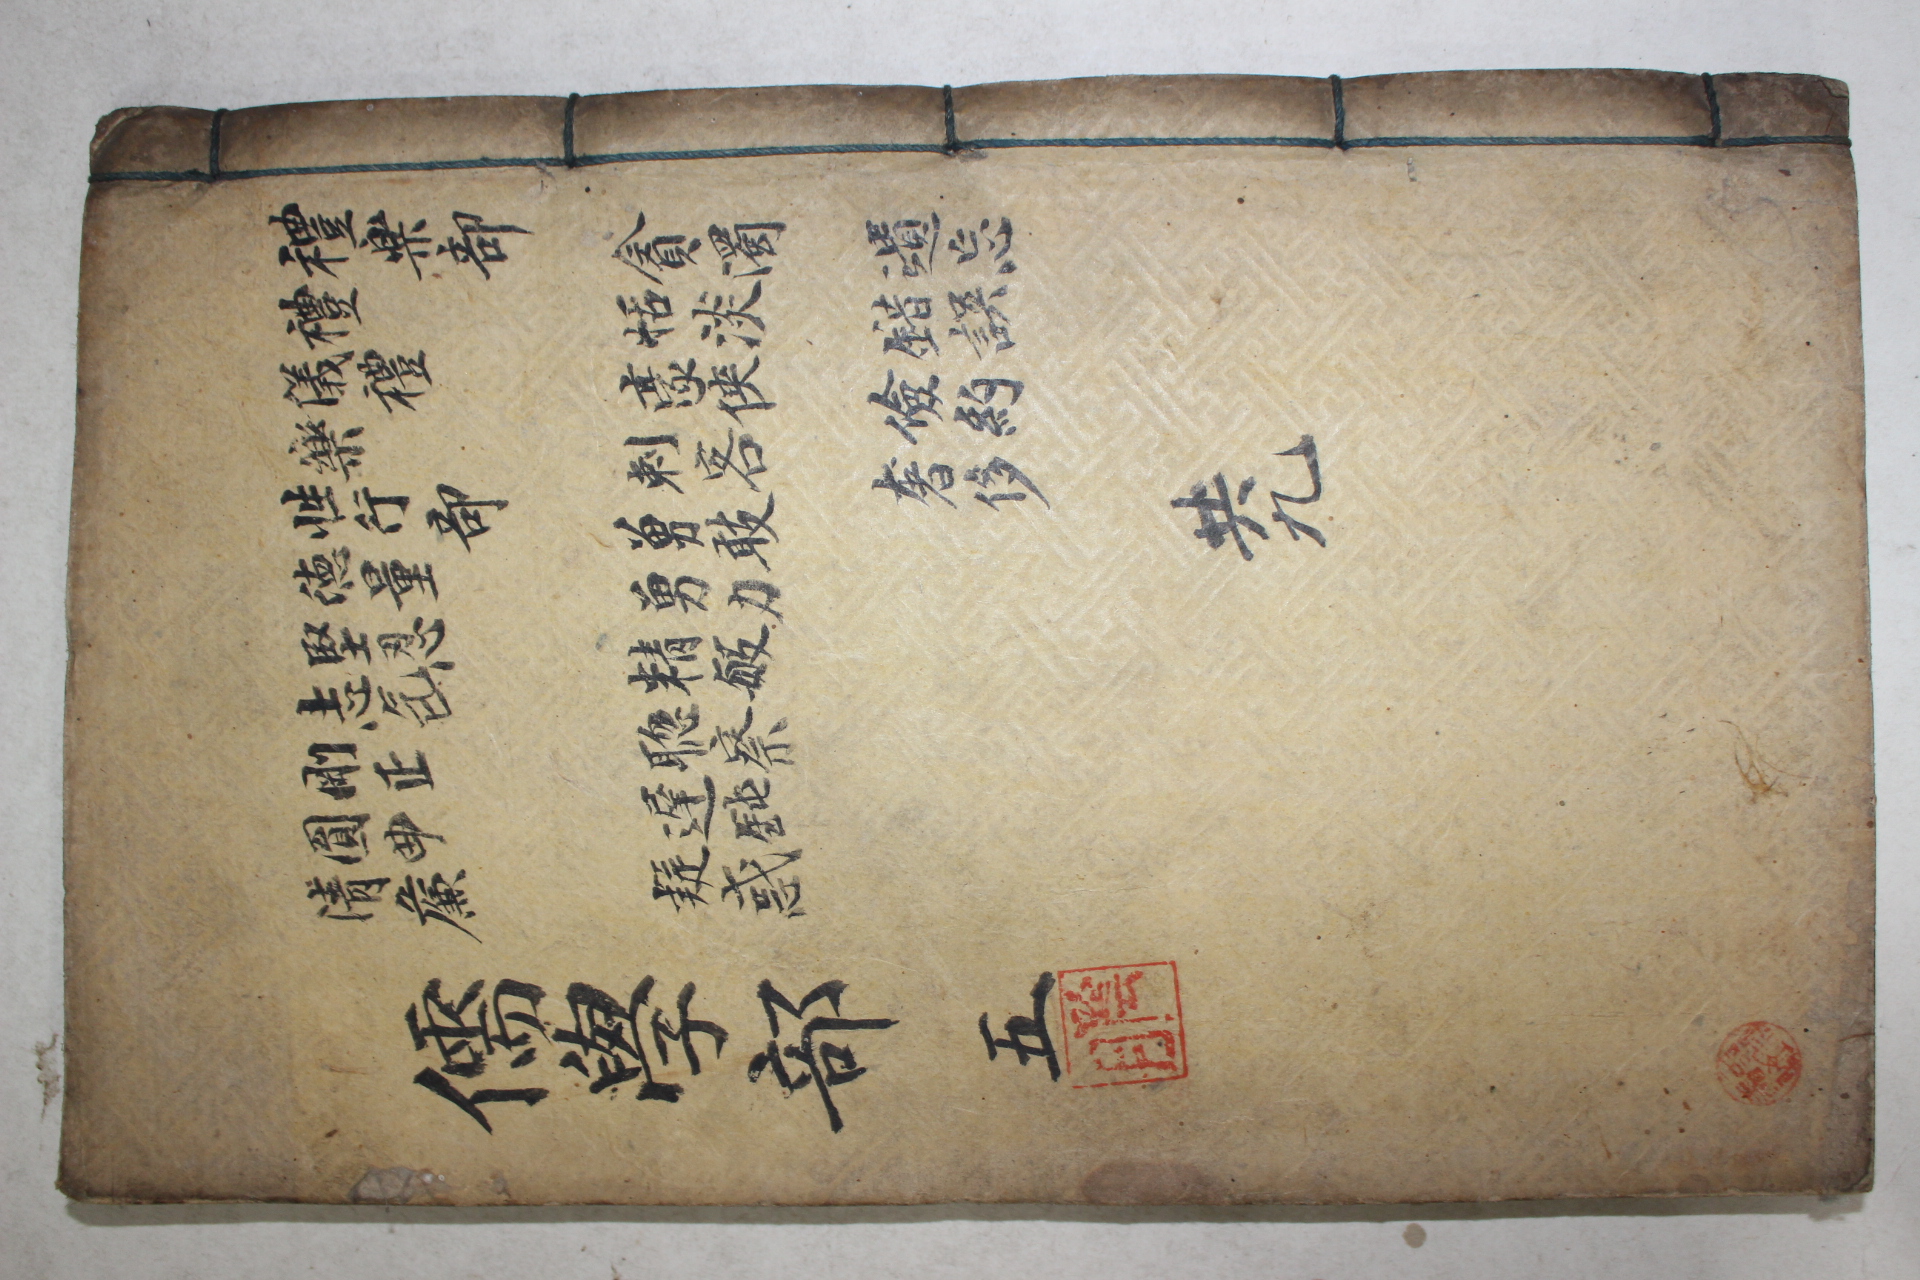 禮樂部
禮
儀禮
樂
性行部
德量
堅忍
志气
剛正
圓曲
清廉
貪濁
恬淡
豪俠
刺客
勇敢
勇力
精敏
聰察
遲鈍
疑惑
遺忘
錯誤
儉約
奢侈
共九
儒學部 五